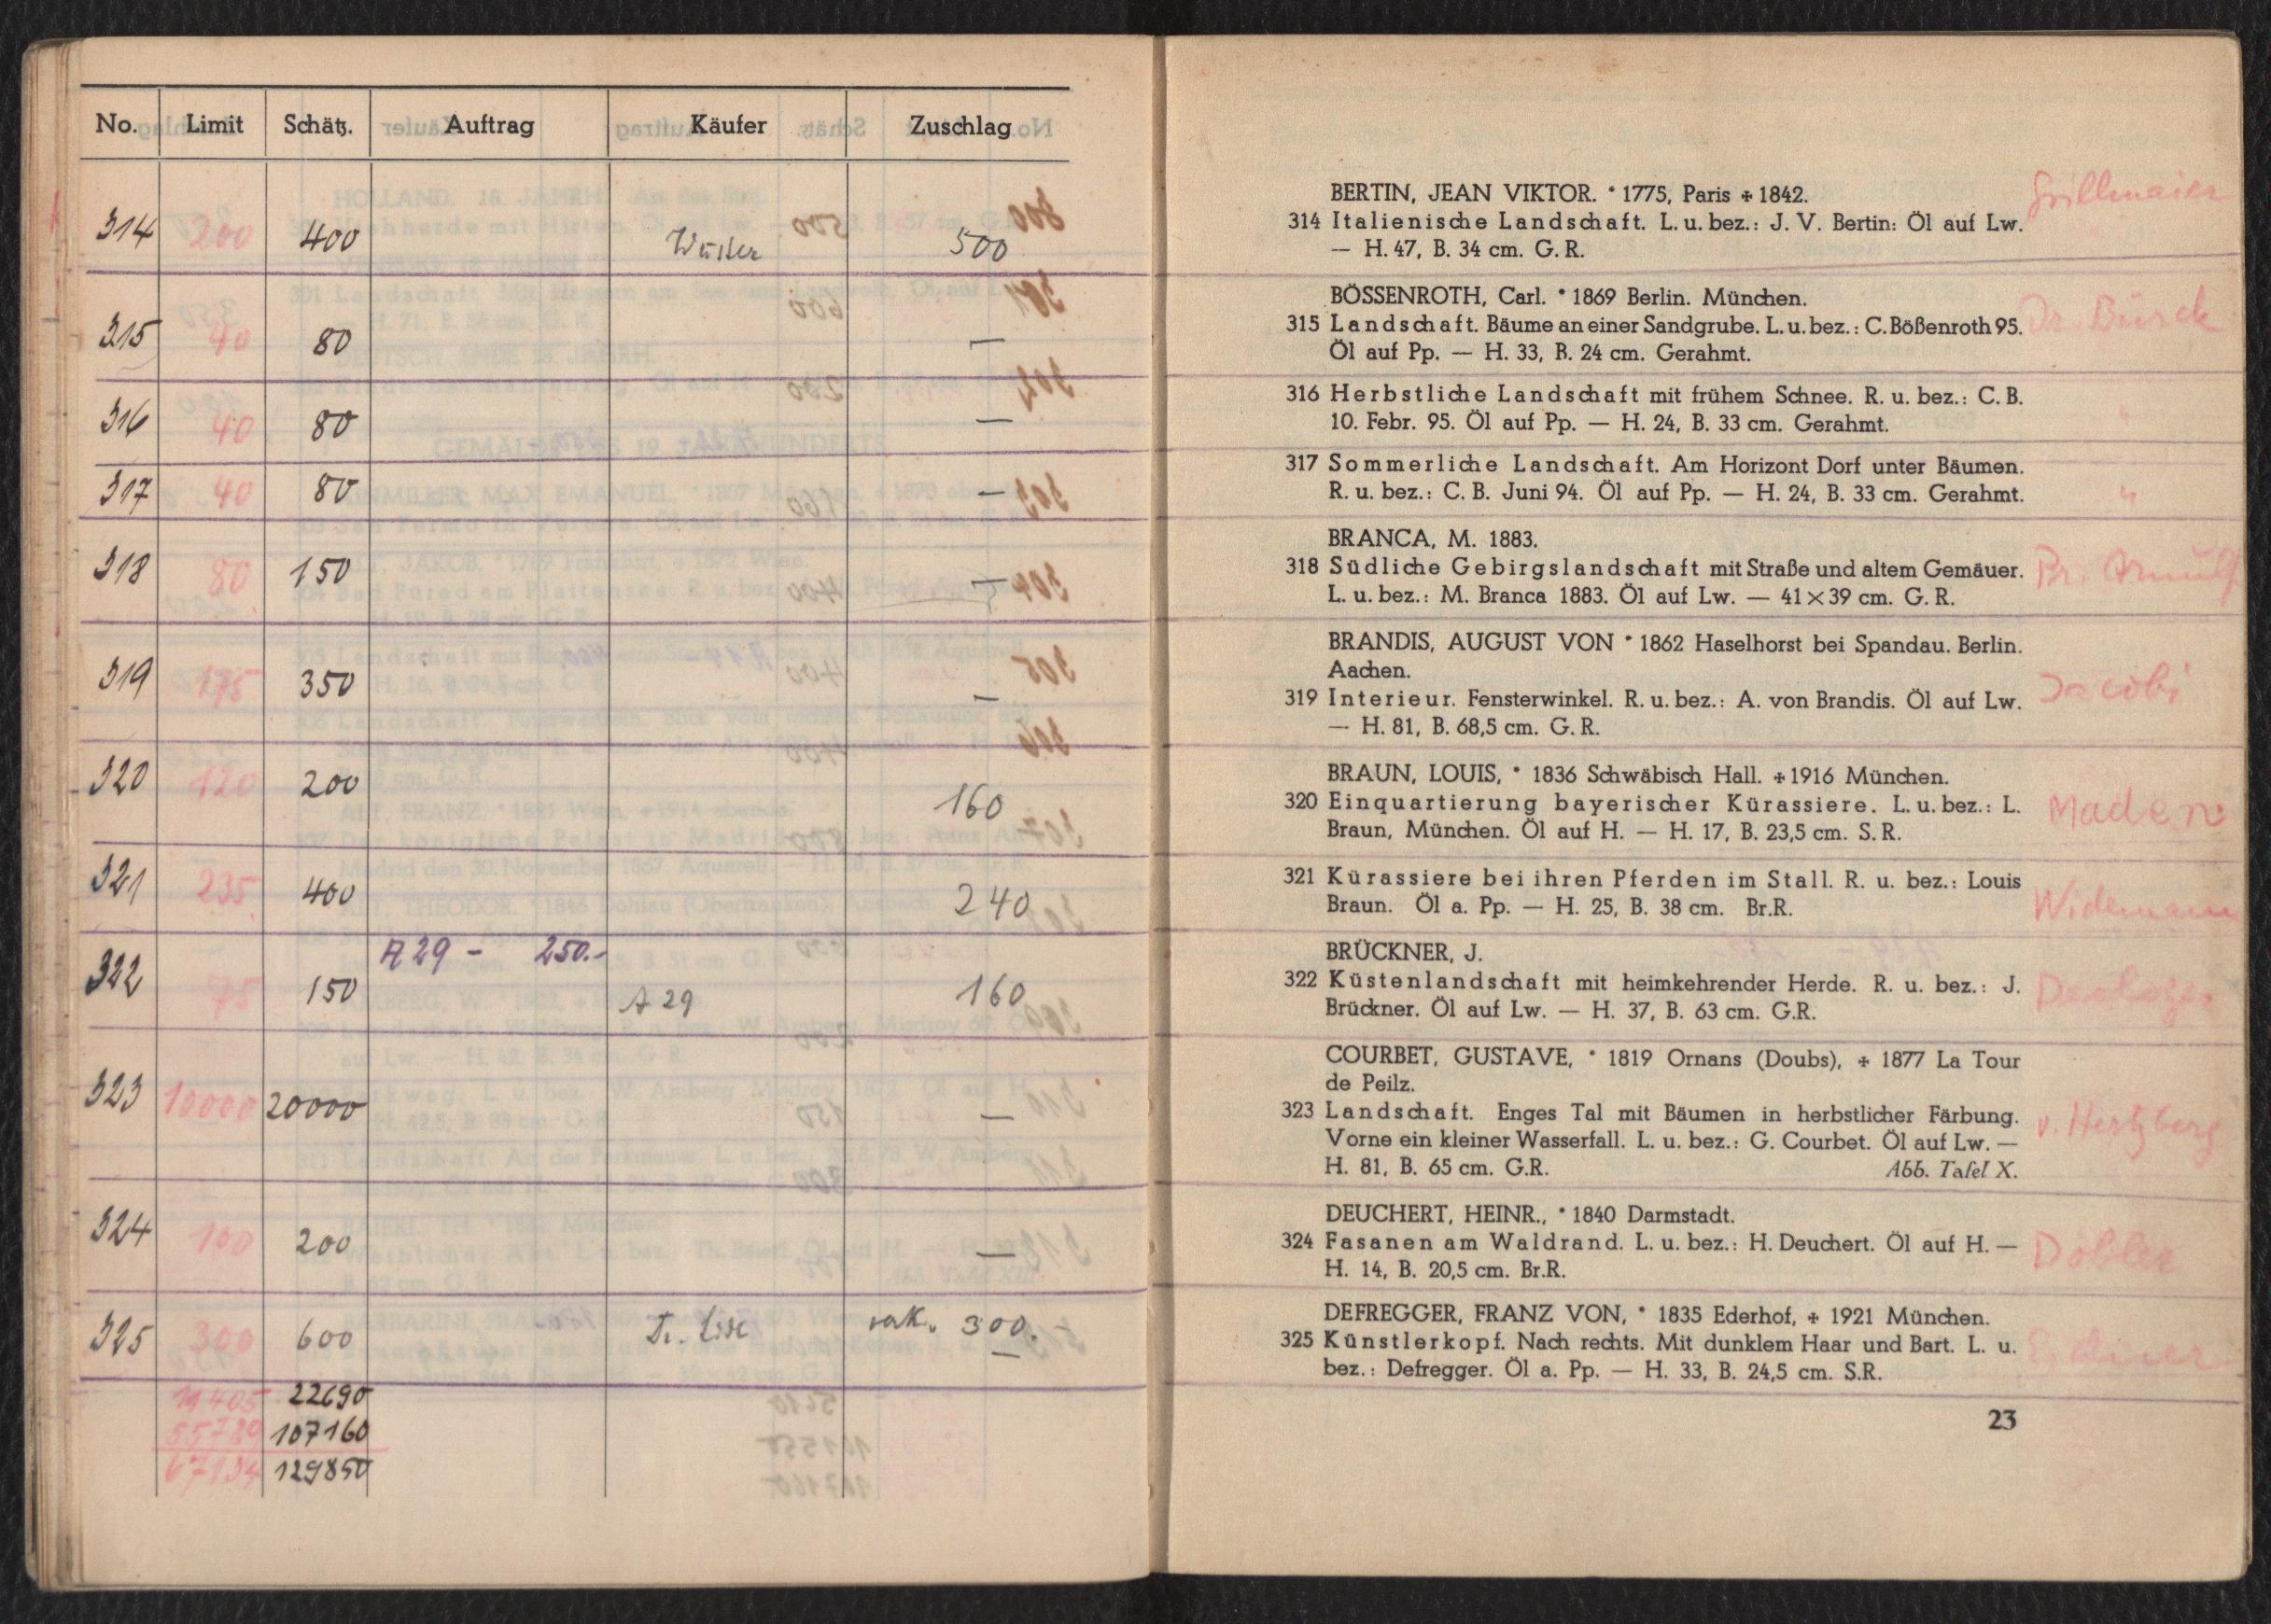 No. Limit Schätz. Auftrag Käufer Zuschlag
314 200 400 500
315 40 80 —
316 40 80 —
317 40 80 —
318 80 150 —
319 175 350 —
320 120 200 160
321 235 400 240
A 29 - 250.-
322 75 150 A 29 160
323 10000 20000 —
324 100 200 —
325 300 600 300.
22690
107160
129850
BERTIN, JEAN VIKTOR. * 1775, Paris ✠ 1842.
314 Italienische Landschaft. L. u. bez.: J. V. Bertin: Öl auf Lw.
— H. 47, B. 34 cm. G. R.
Grillmaier
BÖSSENROTH, Carl. * 1869 Berlin. München.
315 Landschaft. Bäume an einer Sandgrube. L. u. bez.: C. Bößenroth 95.
Öl auf Pp. — H. 33, B. 24 cm. Gerahmt.
316 Herbstliche Landschaft mit frühem Schnee. R. u. bez.: C. B.
10. Febr. 95. Öl auf Pp. — H. 24, B. 33 cm. Gerahmt.
"
317 Sommerliche Landschaft. Am Horizont Dorf unter Bäumen.
R. u. bez.: C. B. Juni 94. Öl auf Pp. — H. 24, B. 33 cm. Gerahmt.
"
BRANCA, M. 1883.
318 Südliche Gebirgslandschaft mit Straße und altem Gemäuer.
L. u. bez.: M. Branca 1883. Öl auf Lw. — 41×39 cm. G. R.
Pr. Arnulf
BRANDIS, AUGUST VON * 1862 Haselhorst bei Spandau. Berlin.
Aachen.
319 Interieur. Fensterwinkel. R. u. bez.: A. von Brandis. Öl auf Lw.
— H. 81, B. 68,5 cm. G. R.
Jacobi
BRAUN, LOUIS, * 1836 Schwäbisch Hall. ✠ 1916 München.
320 Einquartierung bayerischer Kürassiere. L. u. bez.: L.
Braun, München. Öl auf H. — H. 17, B. 23,5 cm. S. R.
321 Kürassiere bei ihren Pferden im Stall. R. u. bez.: Louis
Braun. Öl a. Pp. — H. 25, B. 38 cm. Br.R.
Widemann
BRÜCKNER, J.
322 Küstenlandschaft mit heimkehrender Herde. R. u. bez.: J.
Brückner. Öl auf Lw. — H. 37, B. 63 cm. G.R.
COURBET, GUSTAVE, * 1819 Ornans (Doubs), ✠ 1877 La Tour
de Peilz.
323 Landschaft. Enges Tal mit Bäumen in herbstlicher Färbung.
Vorne ein kleiner Wasserfall. L. u. bez.: G. Courbet. Öl auf Lw. —
H. 81, B. 65 cm. G.R. Abb. Tafel X.
v. Hertzberg
DEUCHERT, HEINR., * 1840 Darmstadt.
324 Fasanen am Waldrand. L. u. bez.: H. Deuchert. Öl auf H. —
H. 14, B. 20,5 cm. Br.R.
Döbler
DEFREGGER, FRANZ VON, * 1835 Ederhof, ✠ 1921 München.
325 Künstlerkopf. Nach rechts. Mit dunklem Haar und Bart. L. u.
bez.: Defregger. Öl a. Pp. — H. 33, B. 24,5 cm. S.R.
23